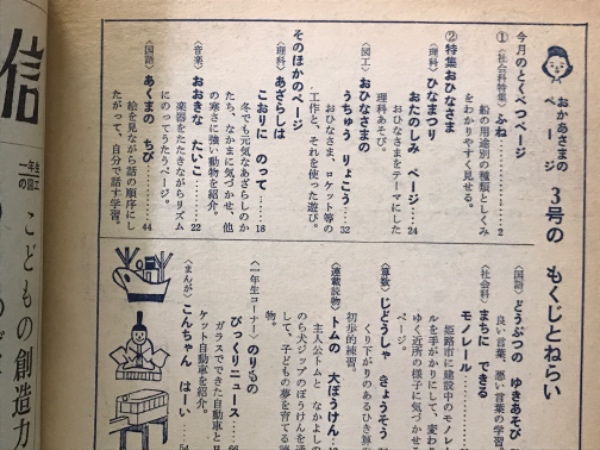 おかあさまの
ページ
3号の もくじとねらい
今月のとくべつページ
①〈社会科特集〉ふね……1〜2
船の用途別の種類としくみ
をわかりやすく見せる。
②特集おひなさま
〈理科〉ひなまつり
おたのしみ ページ……24
おひなさまをテーマにした
理科あそび。
〈図工〉おひなさまの
うちゅう りょこう……32
おひなさま、ロケット等の
工作と、それを使った遊び。
そのほかのページ
〈理科〉あざらしは
こおりに のって……18
冬でも元気なあざらしのか
たち、なかまに気づかせ、他
の寒さに強い動物を紹介。
〈音楽〉おおきな たいこ……22
楽器をたたきながらリズム
にのってうたうページ。
〈国語〉あくまの ちび……44
絵を見ながら話の順序にし
たがって、自分で話す学習。
〈国語〉どうぶつの ゆきあそび
良い言葉、悪い言葉の学習。
〈社会科〉まちに できる
モノレール
姫路市に建設中のモノレー
ルを手がかりにして、変わり
ゆく近所の様子に気づかせる
ページ。
〈算数〉じどうしゃ きょうそう
くり下がりのあるひき算の
初歩的練習。
〈連載読物〉トムの 大ぼうけん
主人公トムと なかよしの
のら犬ジップのぼうけんを通
して、子どもの夢を育てる
物。
〈一年生コーナー〉のりもの
びっくりニュース……66
ガラスでできた自動車と
ケット自動車を紹介。
〈まんが〉こんちゃん はーい
54
信
一年生
の図工
こどもの創造力